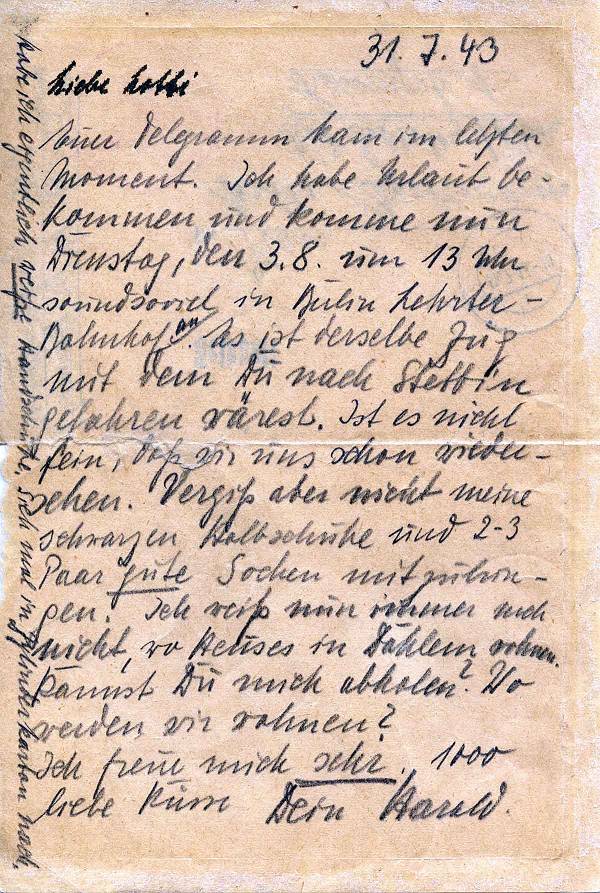 31.7.43
Liebe Lotti
Euer Telegramm kam im letzten
Moment. Ich habe Urlaub be-
kommen und komme nun
Dienstag, den 3.8. um 13 Uhr
soundsoviel in Berlin Lehrter-
Bahnhof an. Es ist derselbe Zug
mit dem Du nach Stettin
gefahren wärest. Ist es nicht
fein, daß wir uns schon wieder-
sehen. Vergiß aber nicht meine
schwarzen Halbschuhe und 2-3
Paar gute Socken mitzubrin-
gen. Ich weiß nun immer noch
nicht, wo Heuses in Dahlem wohnen.
Kannst Du mich abholen? Wo
werden wir wohnen?
Ich freue mich sehr. 1000
liebe Küsse Dein Harald.
Habe ich eigentlich weiße Handschuhe. Sieh mal im Zylinderkarton nach.